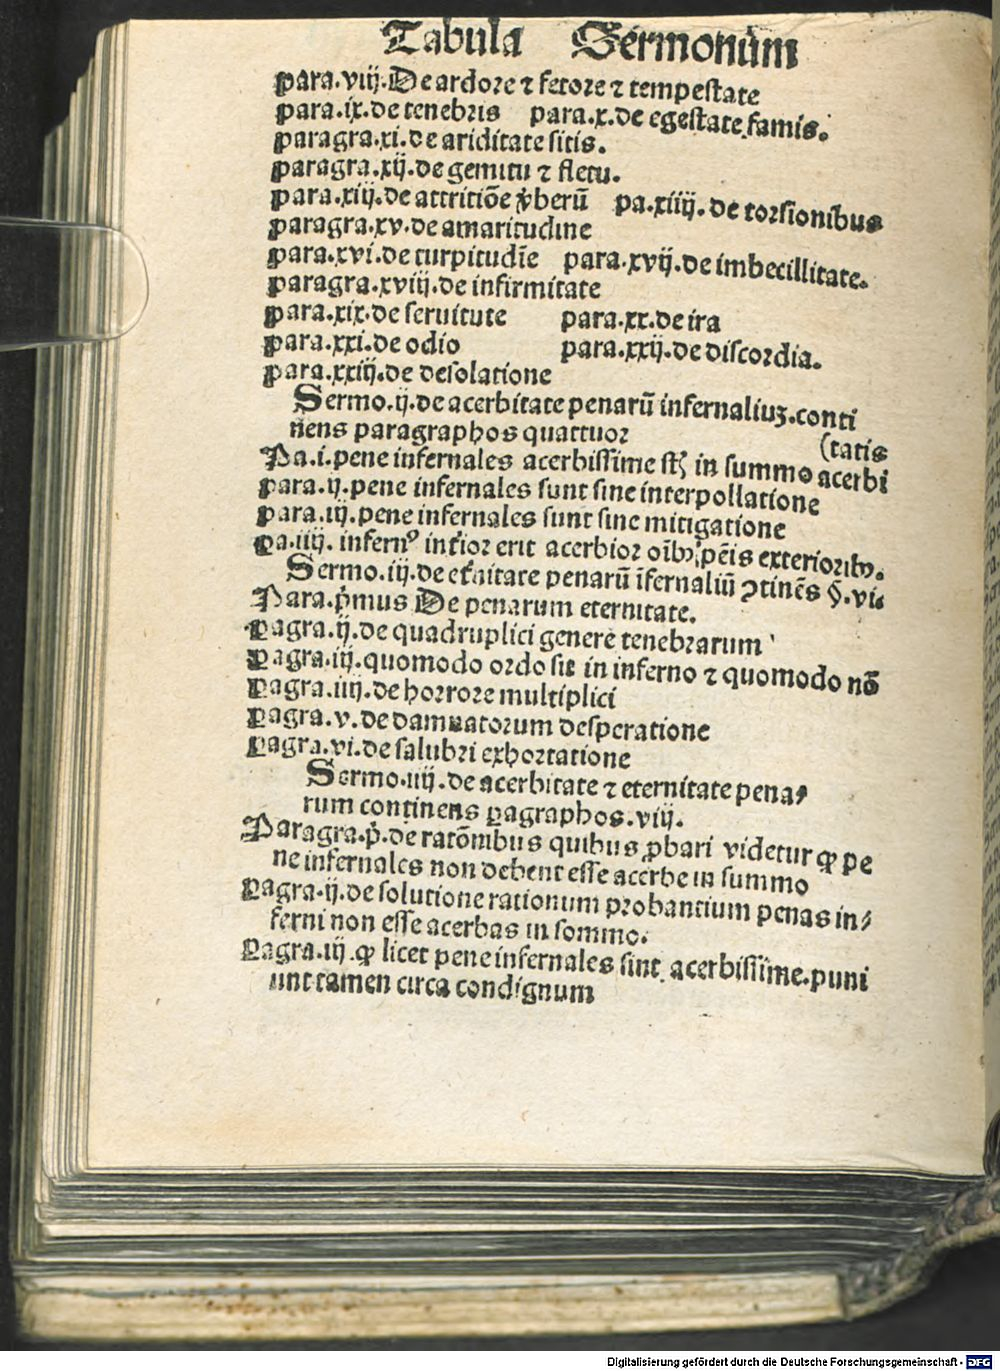 Tabula Sermonũm
para.viij.De ardore ⁊ fetore ⁊ tempestate
para.ix.de tenebris para.x.de egestate famis.
paragra.xi.de ariditate sitis.
paragra.xij.de gemitu ⁊ fletu.
para.xiij.de attritiõe v̓berũ pa.xiiij.de torsionibus
paragra.xv.de amaritudine
para.xvi.de turpitudĩe para.xvij.de imbecillitate.
paragra.xviij.de infirmitate
para.xix.de seruitute para.xx.de ira
para.xxi.de odio para.xxij.de discordia.
para.xxiij.de desolatione
Sermo.ij.de acerbitate penarũ infernaliuꝫ.conti
nens paragraphos quattuor
(tatis
Pa.i.pene infernales acerbissime st̉ in summo acerbi
para.ij.pene infernales sunt sine interpollatione
para.iij.pene infernales sunt sine mitigatione
pa.iiij. infernꝰ int̓ior erit acerbior oĩbꝰ pẽis exterioribꝰ.
Sermo.iij.de et̓nitate penarũ ĩfernaliũ ꝯtinẽs §.vi.
Para.p̓mus De penarum eternitate.
ꝑagra.ij.de quadruplici genere tenebrarum
ꝑagra.iij.quomodo ordo sit in inferno ⁊ quomodo nõ
ꝑagra.iiij.de horrore multiplici
ꝑagra.v.de damnatorum desperatione
ꝑagra.vi.de salubri exhortatione
Sermo.iiij.de acerbitate ⁊ eternitate pena⸗
rum continens ꝑagraphos.viij.
Paragra.p̓.de ratõnibus quibus ꝓbari videtur ꝙ pe
ne infernales non debent esse acerbe in summo
ꝑagra.ij.de solutione rationum probantium penas in⸗
ferni non esse acerbas in sommo.
ꝑagra.iij.ꝙ licet pene infernales sint acerbissime.puni
unt tamen circa condignum
Digitalisierung gefördert durch die Deutsche Forschungsgemeinschaft - DFG